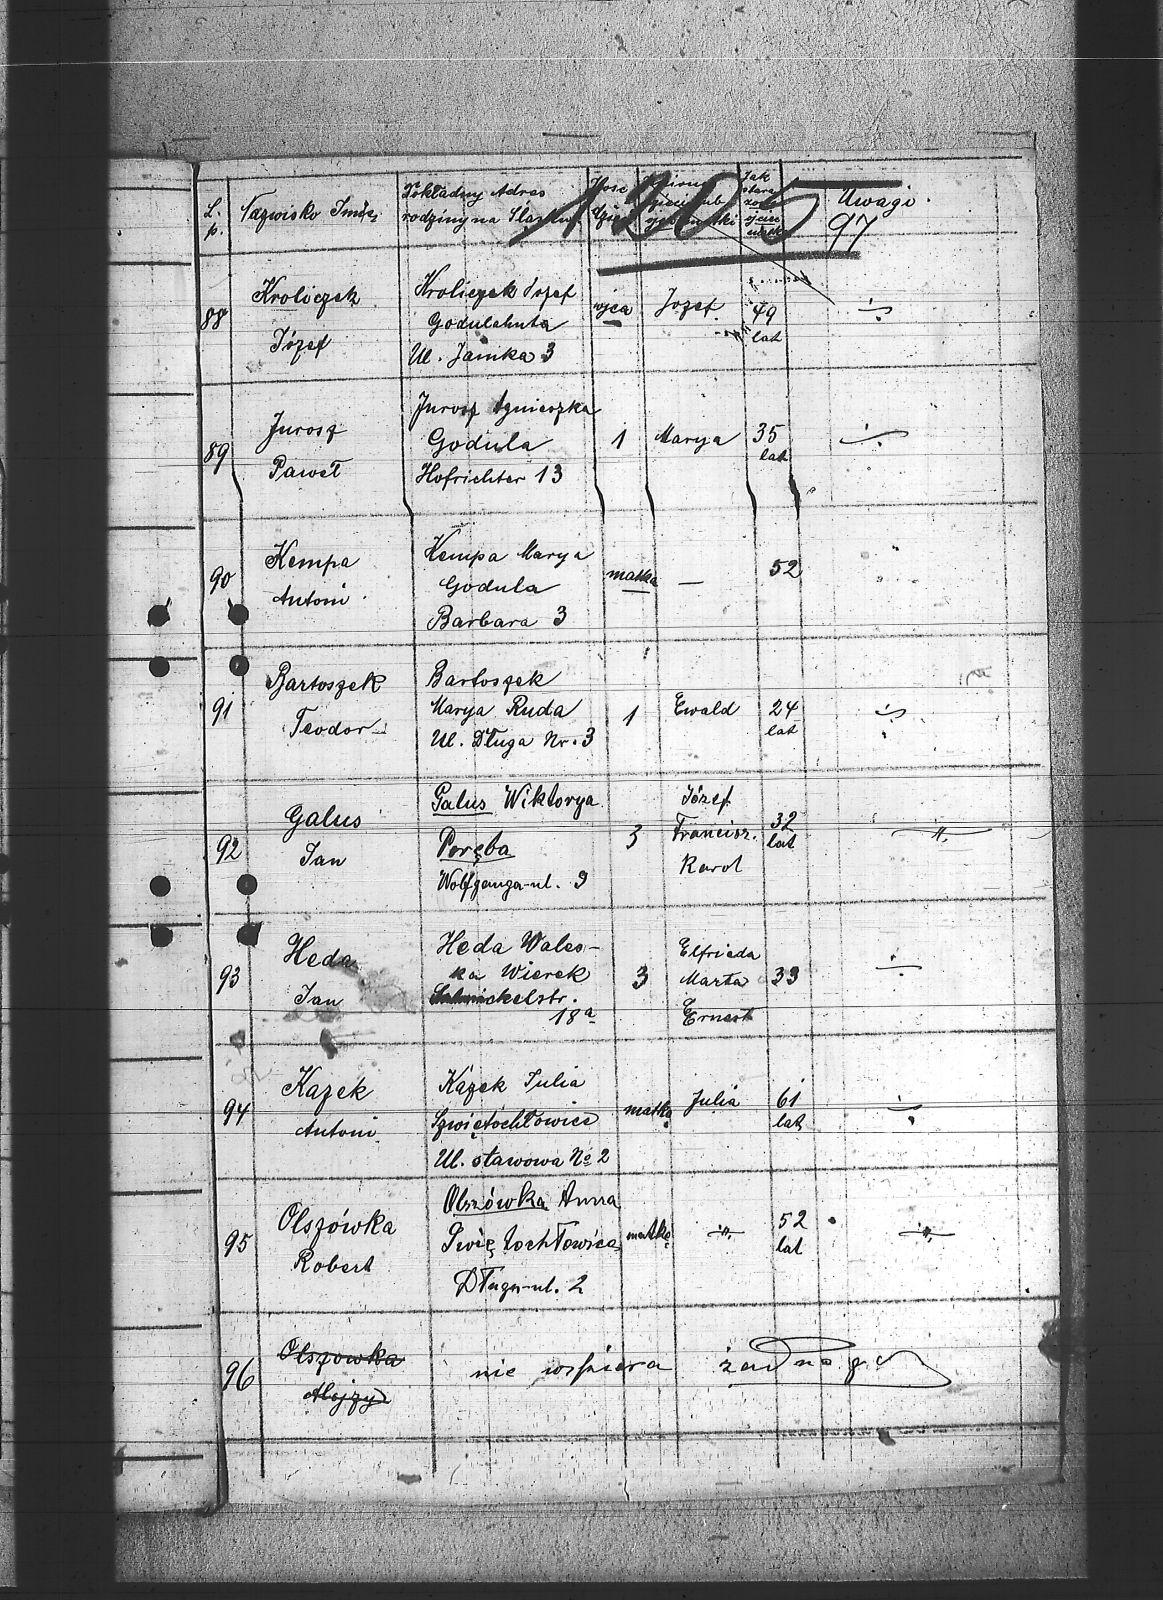 L. p.
Nazwisko Imię
Dokładny Adres
rodziny na Śląsku
Jak
stara
Uwagi.
1205
97
88
Kroliczek
Józef
Kroliczek Józef
Godulahuta
Ul. Janika 3
ojca
Jozef
49
lat
89
Jurosz
Paweł
Jurosz Agnieszka
Godula
Hofrichter 13
1
Marya
35
lat
90
Kempa
Antoni
Kempa Marya
Godula
Barbara 3
matka
—
52
91
Bartoszek
Teodor
Bartoszek
Marya Ruda
Ul. Długa Nr. 3
1
Ewald
24
lat
92
Galus
Jan
Galus Wiktorya
Poręba
Wolfganga-ul. 9
3
Józef
Francisz.
Karol
32
lat
93
Heda
Jan
Heda Wales-
ka Wierek
18a
3
Elfrieda
Marta
Ernest
33
94
Kazek
Antoni
Kazek Julia
Szwiętochłowice
Ul. stawowa No 2
matkę
Julia
61
lat
95
Olszówka
Robert
Olszówka Anna
Swiętochłowice
Długa-ul. 2
matkę
52
lat
96
Olszowka
Alojzy
nie wspiera żadnego